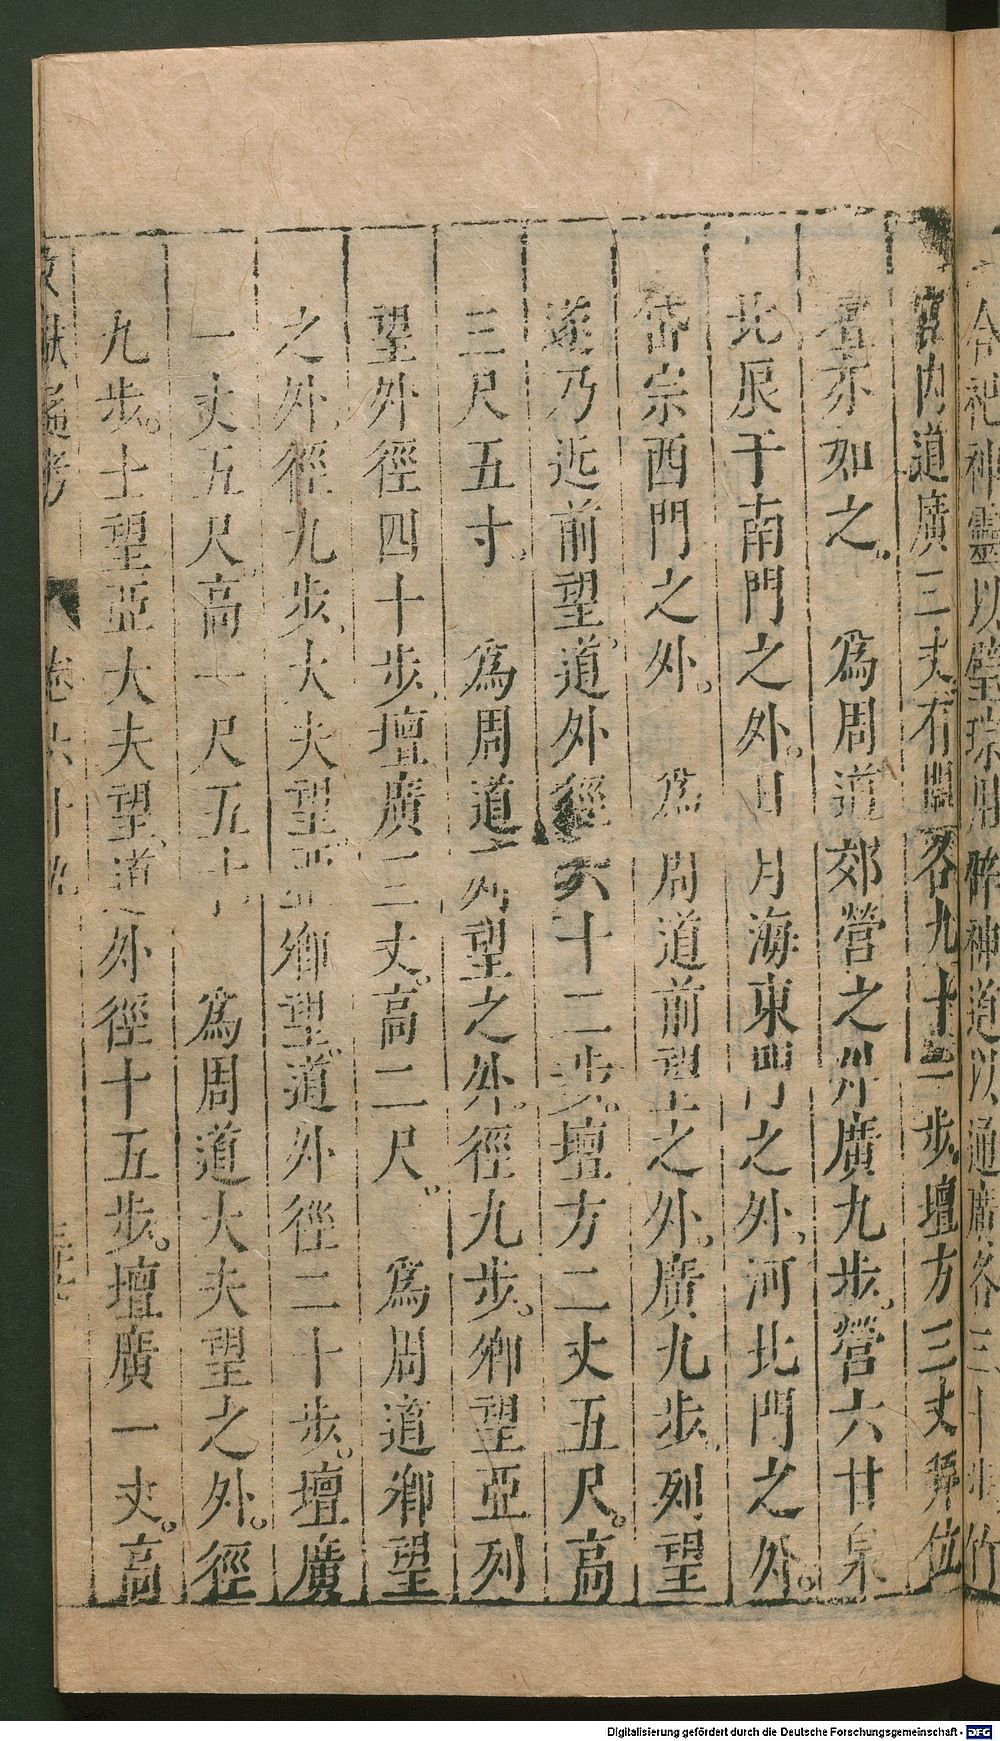 合祀神靈以璧琮用辟神道以通廣各三十步竹
宮內道廣三丈有闕各九十一步壇方三丈拜位
壇亦如之。為周道郊營之外廣九步。營六甘泉
北辰于南門之外。日月海東門之外，河北門之外。
岱宗西門之外。為周道前望之外。廣九步。列望
遂乃近前望。道外徑六十二步。壇方二丈五尺。高
三尺五寸。為周道列望之外。徑九步。卿望亞列
望外徑四十步。壇廣三丈。高二尺。為周道卿望
之外，徑九步，大夫望亞卿望。道外徑二十步。壇廣
一丈五尺，高一尺五寸。為周道大夫望之外。徑
九步。士望亞大夫望。道外徑十五步。壇廣一丈。高
文獻通考 卷六十九